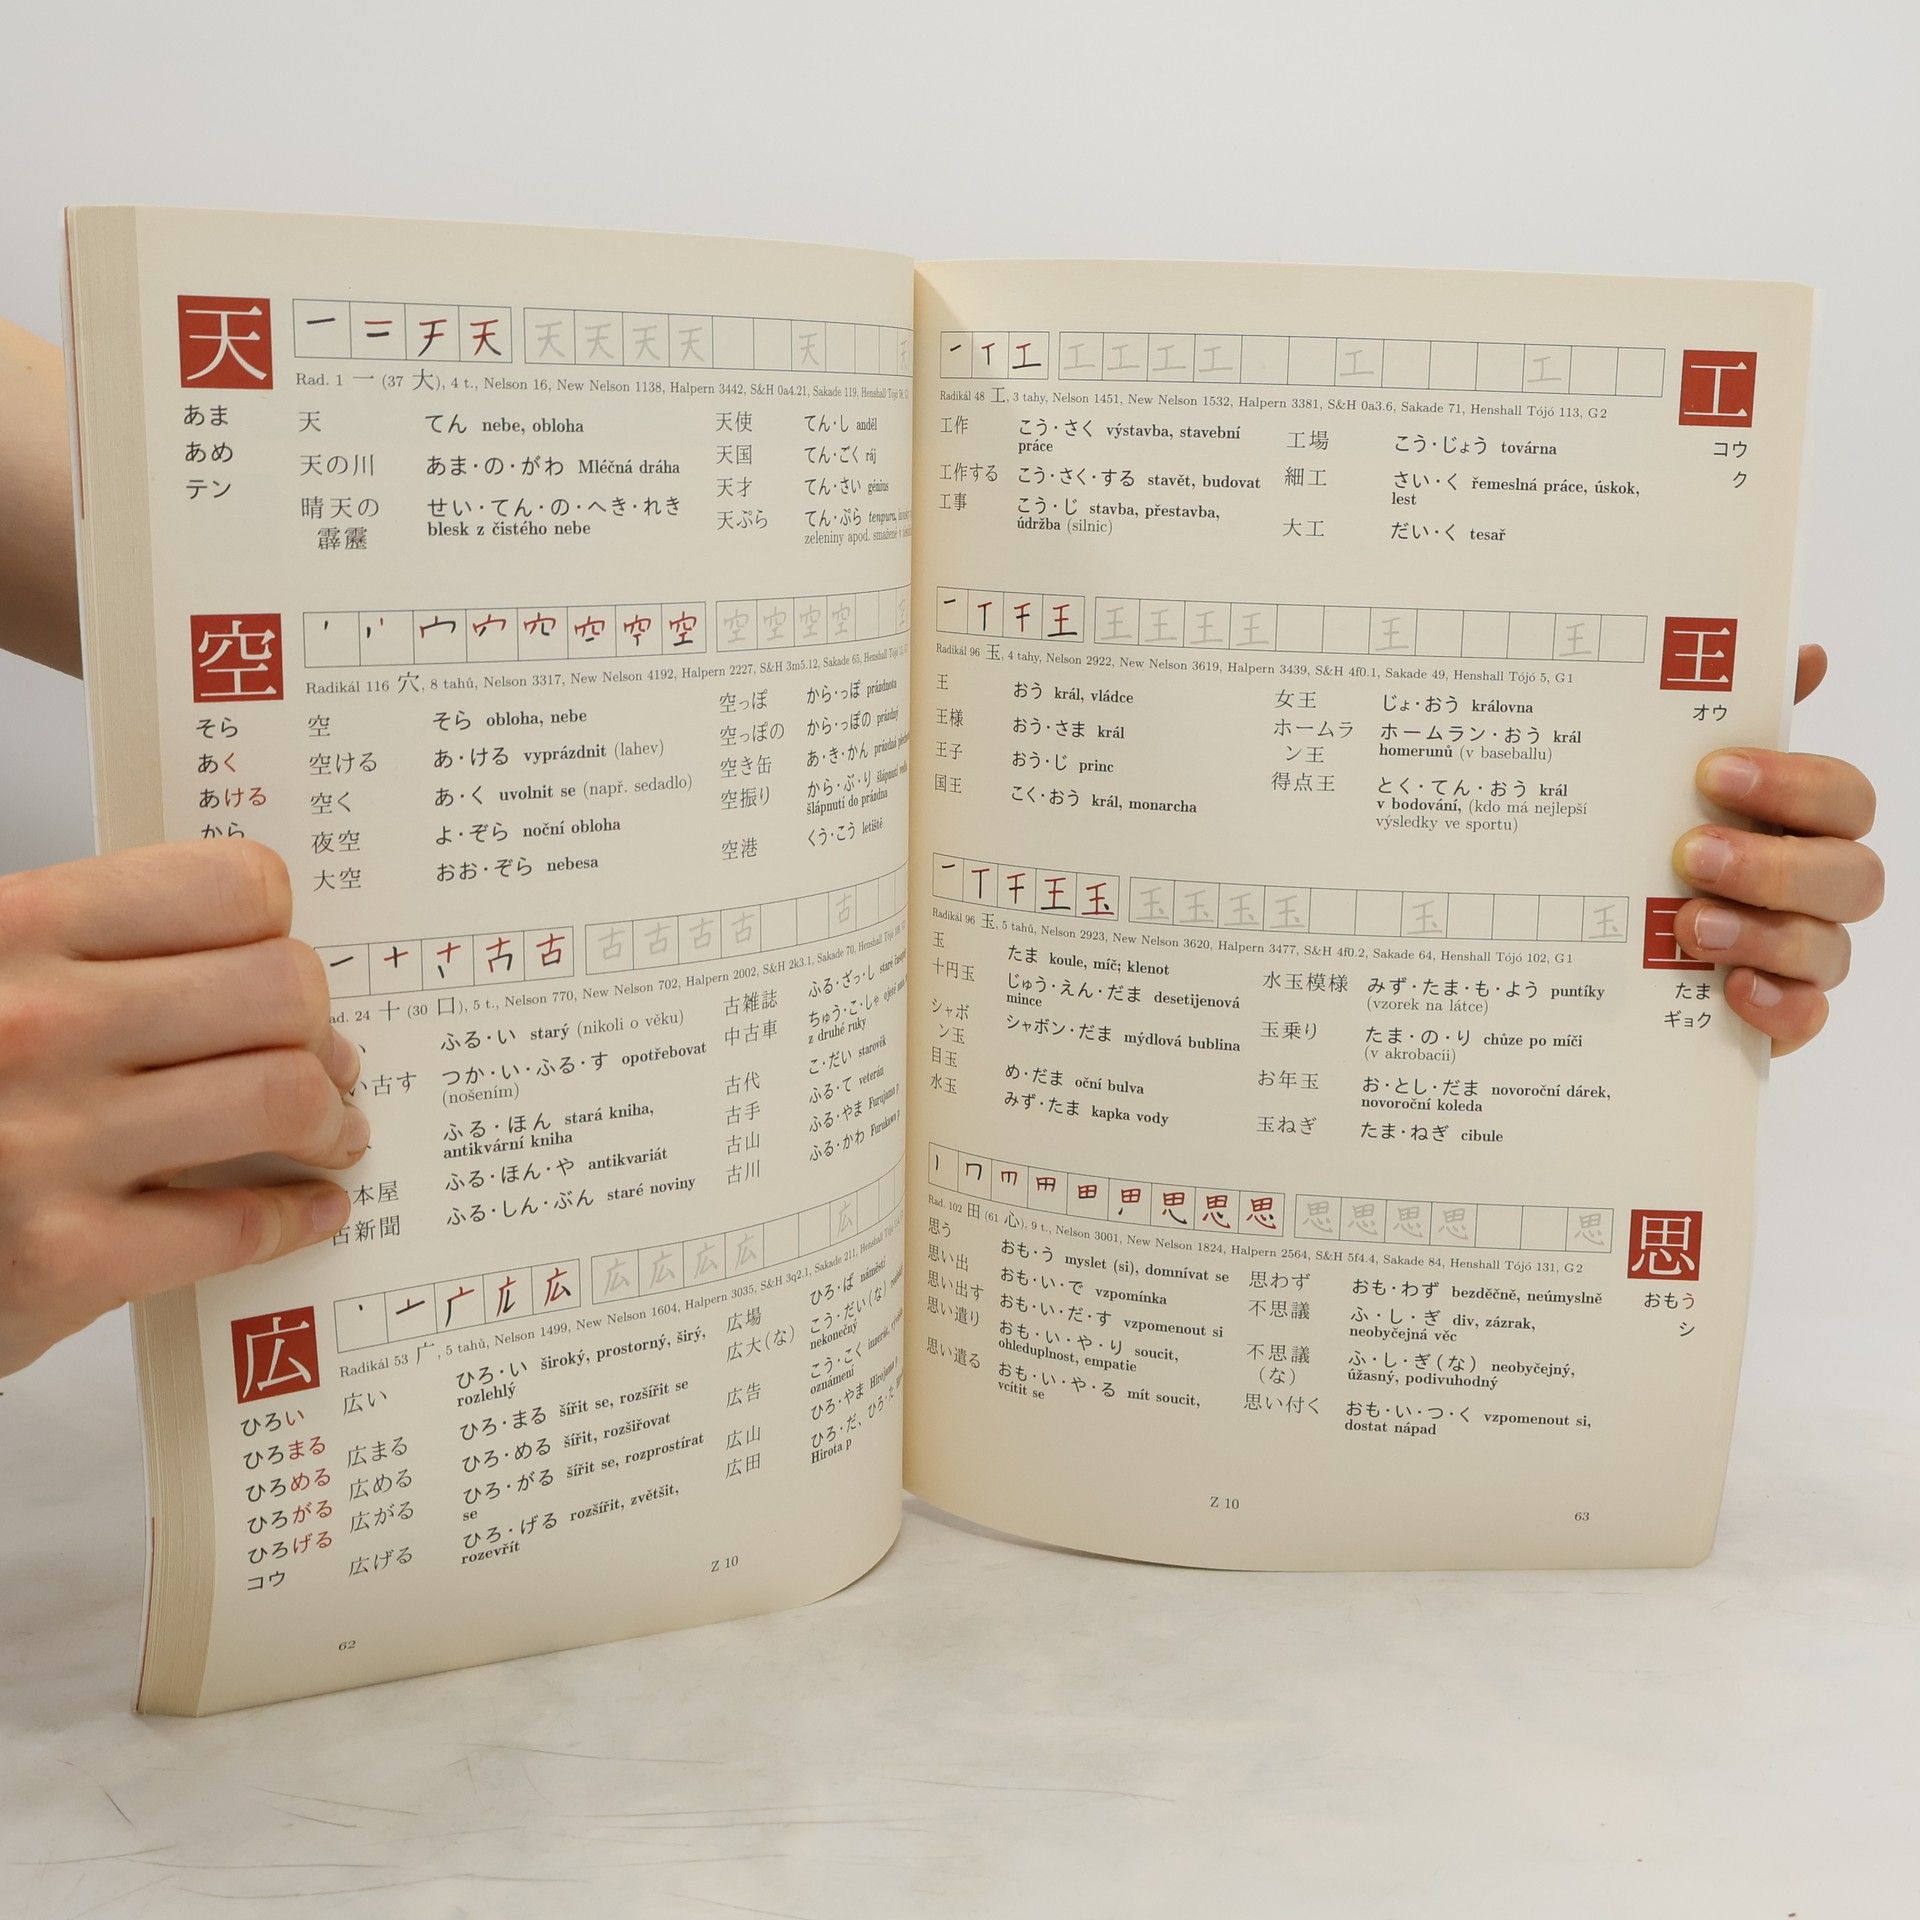 天
あま
あめ
テン
一 二 チ 天 天 天 天 天 天
Rad. 1 一 (37 大), 4 t., Nelson 16, New Nelson 1138, Halpern 3442, S&H 0a4.21, Sakade 119, Henshall Tójó
天 てん nebe, obloha
天の川 あま·の·がわ Mléčná dráha
晴天の せい·てん·の·へき·れき
霹靂 blesk z čistého nebe
天使 てん·し anděl
天国 てん·ごく ráj
天才 てん·さい génius
天ぷら てん·ぷら tenpura,
zeleniny apod. smažené v
空
そら
あく
あける
から
空 空 空 空 空 空
Radikál 116 穴, 8 tahů, Nelson 3317, New Nelson 4192, Halpern 2227, S&H 3m5.12, Sakade 65, Henshall Tójó
空 そら obloha, nebe
空ける あ·ける vyprázdnit (lahev)
空く あ·く uvolnit se (např. sedadlo)
夜空 よ·ぞら noční obloha
大空 おお·ぞら nebesa
空っぽ から·っぽ prázdnota
空っぽの から·っぽの prázdný
空き缶 あ·き·かん prázdná
空振り から·ぶ·り šlápnutí
šlápnutí do prázdna
空港 くう·こう letiště
一 十 古 古 古 古 古 古
ad. 24 十 (30 口), 5 t., Nelson 770, New Nelson 702, Halpern 2002, S&H 2k3.1, Sakade 70, Henshall Tójó
い ふる·い starý (nikoli o věku)
い古す つか·い·ふる·す opotřebovat
(nošením)
ふる·ほん stará kniha,
antikvární kniha
本屋 ふる·ほん·や antikvariát
古新聞 ふる·しん·ぶん staré noviny
古雑誌 ふる·ざっ·し staré
中古車 ちゅう·こ·しゃ ojeté
z druhé ruky
古代 こ·だい starověk
古手 ふる·て veterán
古山 ふる·やま Furujama p
古川 ふる·かわ Furukawa p
広
ひろい
ひろまる
ひろめる
ひろがる
ひろげる
コウ
広 広 広 広 広 広
Radikál 53 广, 5 tahů, Nelson 1499, New Nelson 1604, Halpern 3035, S&H 3q2.1, Sakade 211, Henshall Tójó
広い ひろ·い široký, prostorný, širý,
rozlehlý
広まる ひろ·まる šířit se, rozšířit se
広める ひろ·める šířit, rozšiřovat
広がる ひろ·がる šířit se, rozprostírat
se
広げる ひろ·げる rozšířit, zvětšit,
rozevřít
広場 ひろ·ば náměstí
広大(な) こう·だい(な)
nekonečný
広告 こう·こく inzerát,
oznámení
広山 ひろ·やま Hirojama p
広田 ひろ·だ、ひろ·た
Hirota p
Z 10
62
工
コウ
ク
一 丅 工 工 工 工 工 工 工
Radikál 48 工, 3 tahy, Nelson 1451, New Nelson 1532, Halpern 3381, S&H 0a3.6, Sakade 71, Henshall Tójó 113, G2
工作 こう·さく výstavba, stavební
práce
工作する こう·さく·する stavět, budovat
工事 こう·じ stavba, přestavba,
údržba (silnic)
工場 こう·じょう továrna
細工 さい·く řemeslná práce, úskok,
lest
大工 だい·く tesař
王
オウ
一 丅 干 王 王 王 王 王 王 王
Radikál 96 玉, 4 tahy, Nelson 2922, New Nelson 3619, Halpern 3439, S&H 4f0.1, Sakade 49, Henshall Tójó 5, G1
王 おう král, vládce
王様 おう·さま král
王子 おう·じ princ
国王 こく·おう král, monarcha
女王 じょ·おう královna
ホームラ ホームラン·おう král
ン王 homerunů (v baseballu)
得点王 とく·てん·おう král
v bodování, (kdo má nejlepší
výsledky ve sportu)
たま
ギョク
一 丅 干 王 玉 玉 玉 玉 玉 玉 玉
Radikál 96 玉, 5 tahů, Nelson 2923, New Nelson 3620, Halpern 3477, S&H 4f0.2, Sakade 64, Henshall Tójó 102, G1
玉 たま koule, míč; klenot
十円玉 じゅう·えん·だま desetijenová
mince
シャボ シャボン·だま mýdlová bublina
ン玉
目玉 め·だま oční bulva
水玉 みず·たま kapka vody
水玉模様 みず·たま·も·よう puntíky
(vzorek na látce)
玉乗り たま·の·り chůze po míči
(v akrobacii)
お年玉 お·とし·だま novoroční dárek,
novoroční koleda
玉ねぎ たま·ねぎ cibule
思
おもう
シ
思 思 思 思 思 思
Rad. 102 田 (61 心), 9 t., Nelson 3001, New Nelson 1824, Halpern 2564, S&H 5f4.4, Sakade 84, Henshall Tójó 131, G2
思う おも·う myslet (si), domnívat se
思い出 おも·い·で vzpomínka
思い出す おも·い·だ·す vzpomenout si
思い遣り おも·い·や·り soucit,
ohleduplnost, empatie
思い遣る おも·い·や·る mít soucit,
vcítit se
思わず おも·わず bezděčně, neúmyslně
不思議 ふ·し·ぎ div, zázrak,
neobyčejná věc
不思議 ふ·し·ぎ(な) neobyčejný,
(な) úžasný, podivuhodný
思い付く おも·い·つ·く vzpomenout si,
dostat nápad
Z 10
63